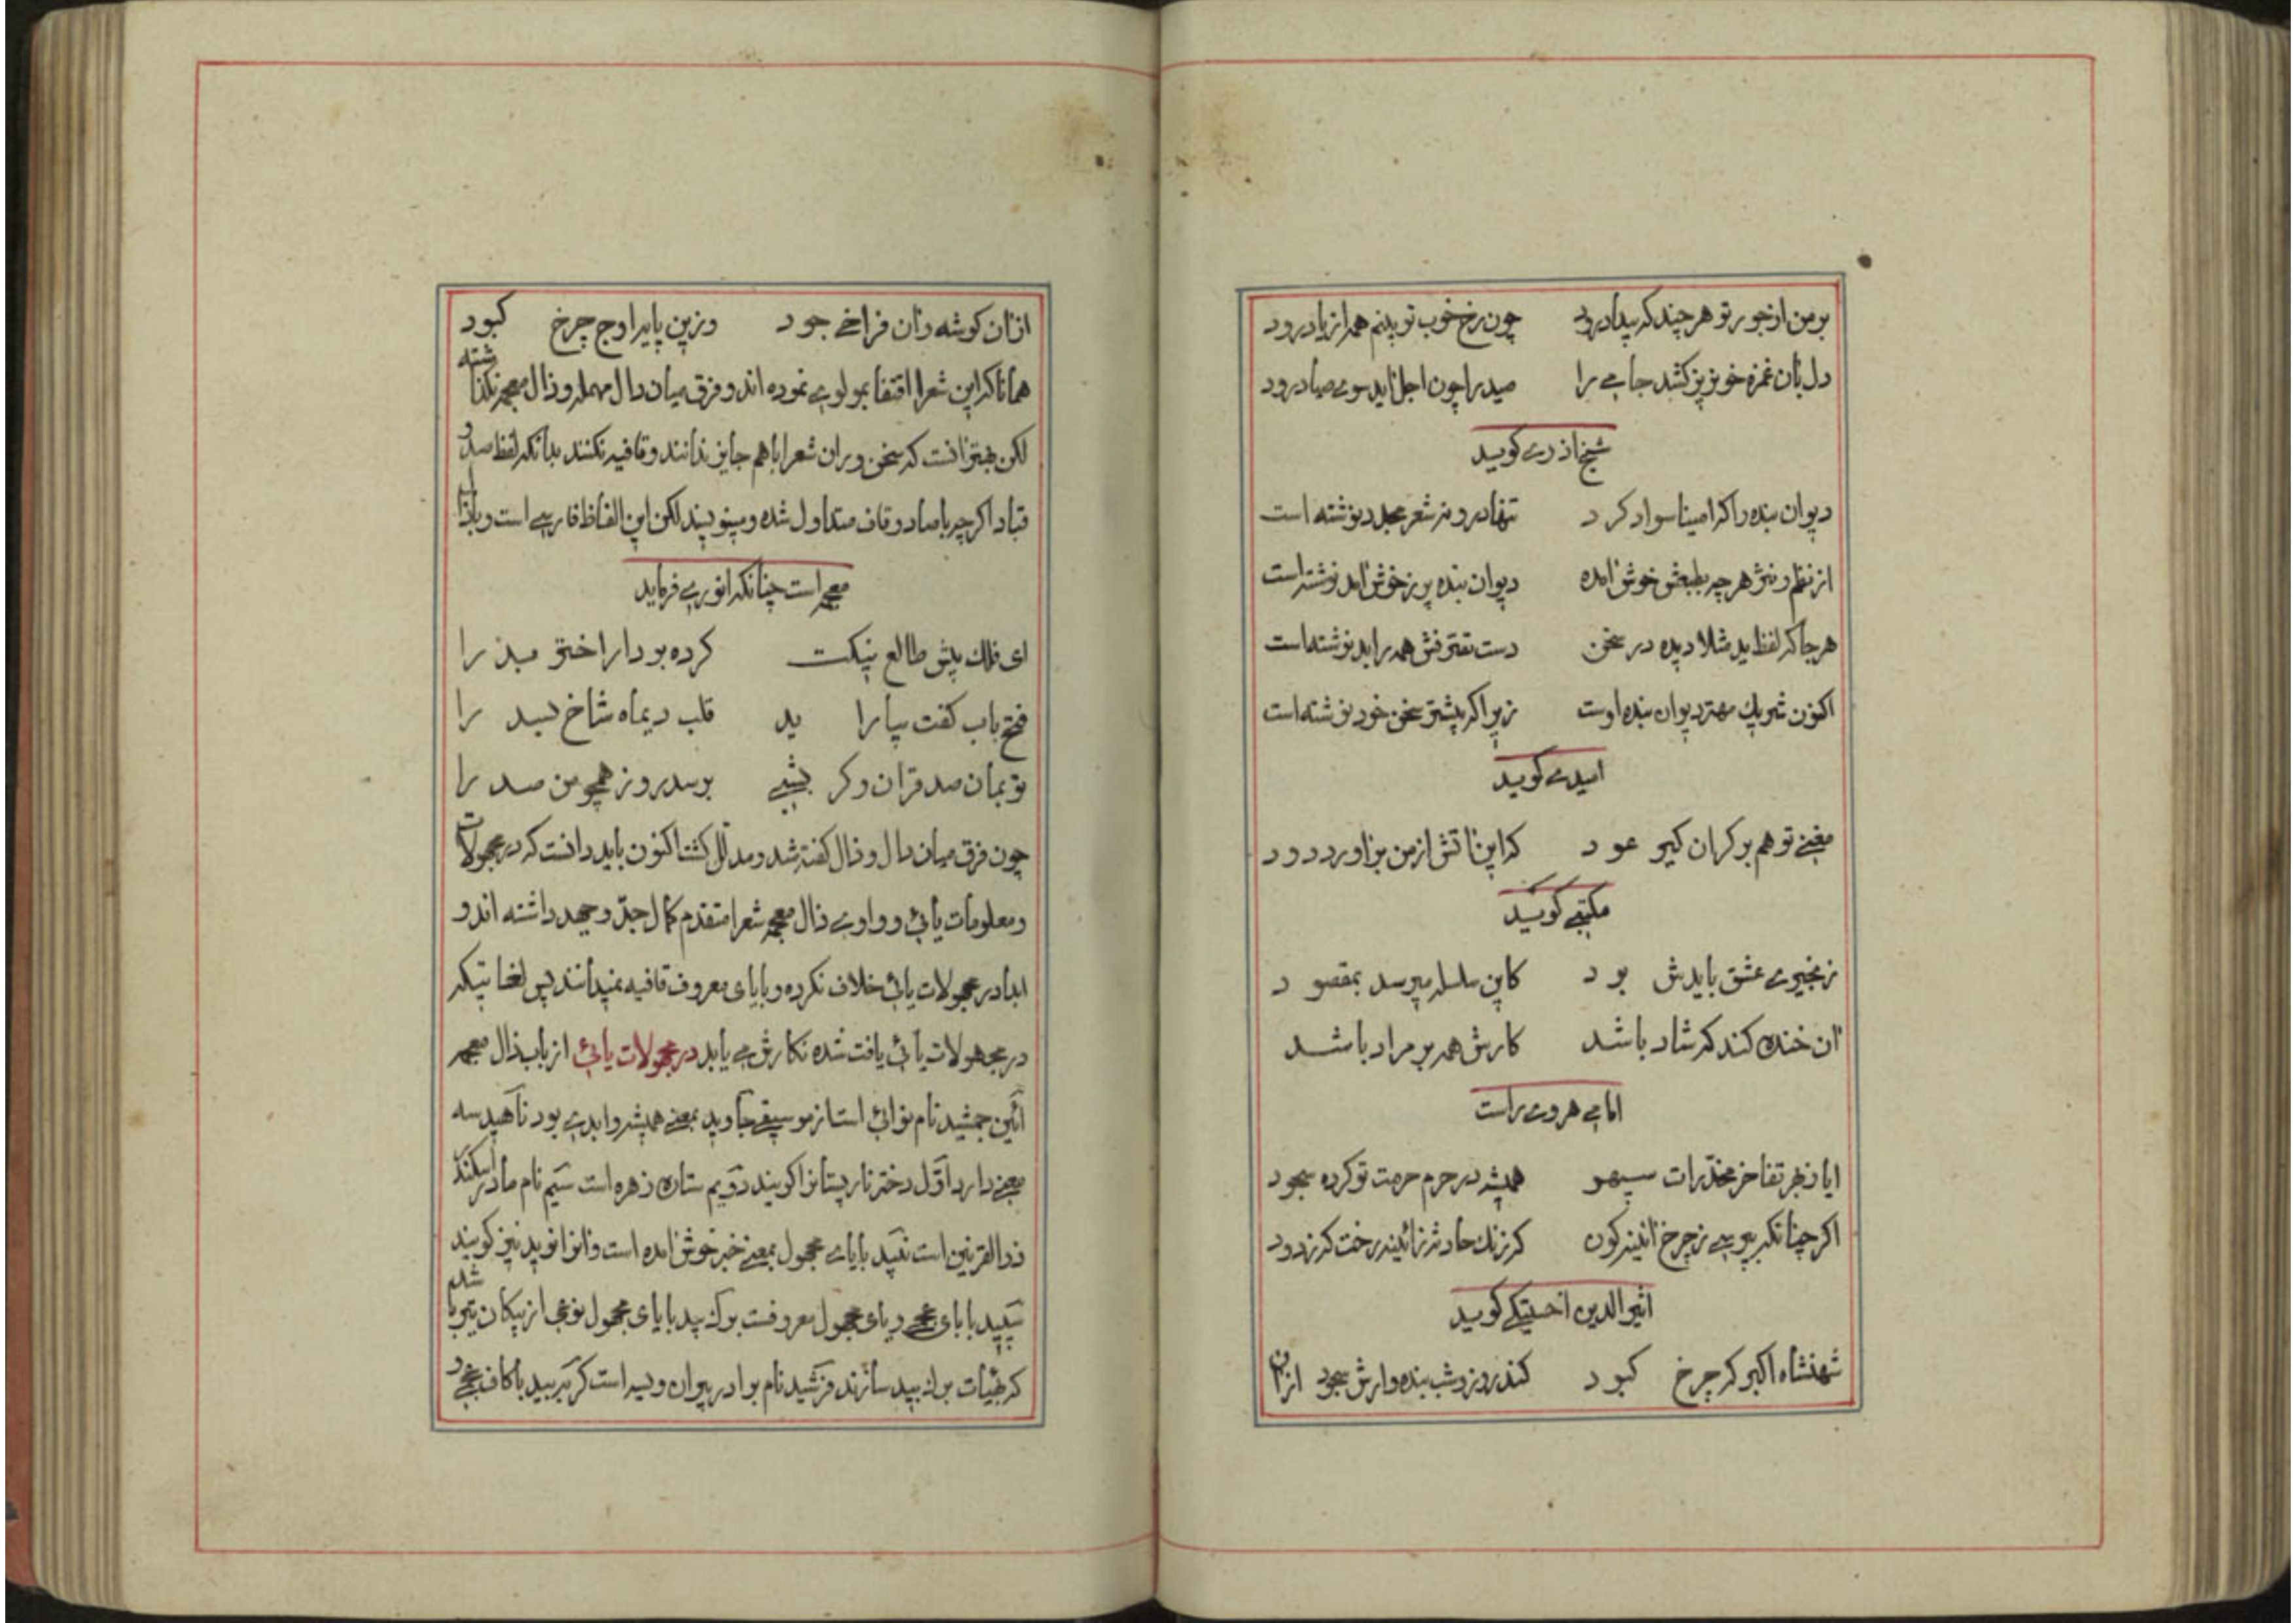 بر من از جور تو هر چند که بیداد رود چون رخ خوب تو بینم همه از یاد رود
دل بان غمزه خونریز کشد جامی را صید را چون اجل اید سوی صیاد رود
شیخ اذری کوید
دیوان بنده را که امینا سواد کرد تنها درو نه شعر مجدد نوشته است
از نظم و نثر هر چه بطبعش خوش امده دیوان بنده پر ز خوش امد نوشته است
هر جا که لفظ ید مثلا دیده در سخن دست تصرفش همه را بد نوشته است
اکنون شریک مهتر دیوان بنده اوست زیرا که بیشتر سخن خود نوشته است
امیدی کوید
مغنی تو هم بر کران کیر عود که این اتش از من براورد دود
مکتبی کوید
زنجیری عشق بایدش بود کاین سلسله میرسد بمقصود
ان خنده کند که شاد باشد کارش همه بر مراد باشد
امامی هروی راست
ایا ز فخر تفاخر مخدرات سپهر همیشه در حرم حرمت تو کرده سجود
اکر چنانکه بپرسی ز چرخ اینه کون که زنک حادثه ز ائینه رخت که زدود
اثیر الدین اخسیکتی کوید
شهنشاه اکبر که چرخ کبود کند روز و شب بنده وارش سجود از ان
از ان کوشه دان فراخی جود وزین پایه اوج چرخ کبود
همانا که این شعرا اقتفا بمولوی نموده اند و فرق میان دال مهمله و ذال معجمه نکذاشته
لکن بهتر انست که سخن وران شعرا باهم جایز ندانند و قافیه نکنند بدانکه لفظ صد و
قباد اکر چه با صاد و قاف متداول شده و مینویسند لکن این الفاظ فارسی است و با ذال
معجمه است چنانکه انوری فرماید
ای فلک پیش طالع نیکت کرده بود ار اختر مبذ را
فتح باب کفت بیارا ید قلب دیماه شاخ بسد را
تو بمان صد قران و کر بشبی برسد روز همچو من صد را
چون فرق میان دال و ذال کفته شد و مدلل کشت اکنون باید دانست که در مجهولات
و معلومات یائی و واوی ذال معجمه شعرا متقدم کمال جد و جهد داشته اند و
ابدا در مجهولات یائی خلاف نکرده و بایای معروف قافیه نمیدانند پس لغاتیکه
در مجهولات یائی یافت شده نکارش می یابد در مجهولات یائی از باب ذال معجمه
آئین جمشید نام نوائی است از موسیقی جاوید بمعنی همیشه و ابدی بود ناهید سه
معنی دارد اول دختر نار پستانرا کویند دویم ستاره زهره است سیم نام مادر اسکندر
ذوالقرنین است نوید بایای مجهول بمعنی خبر خوش امده است و انرا نوید نیز کویند
سپید بابای عجمی و یای مجهول معروفست برک بید بایای مجهول نوعی از پیکان تیر باشد
که بهیئات برک بید سازند فرشید نام برادر پیران ویسه است کربید با کاف عجمی و